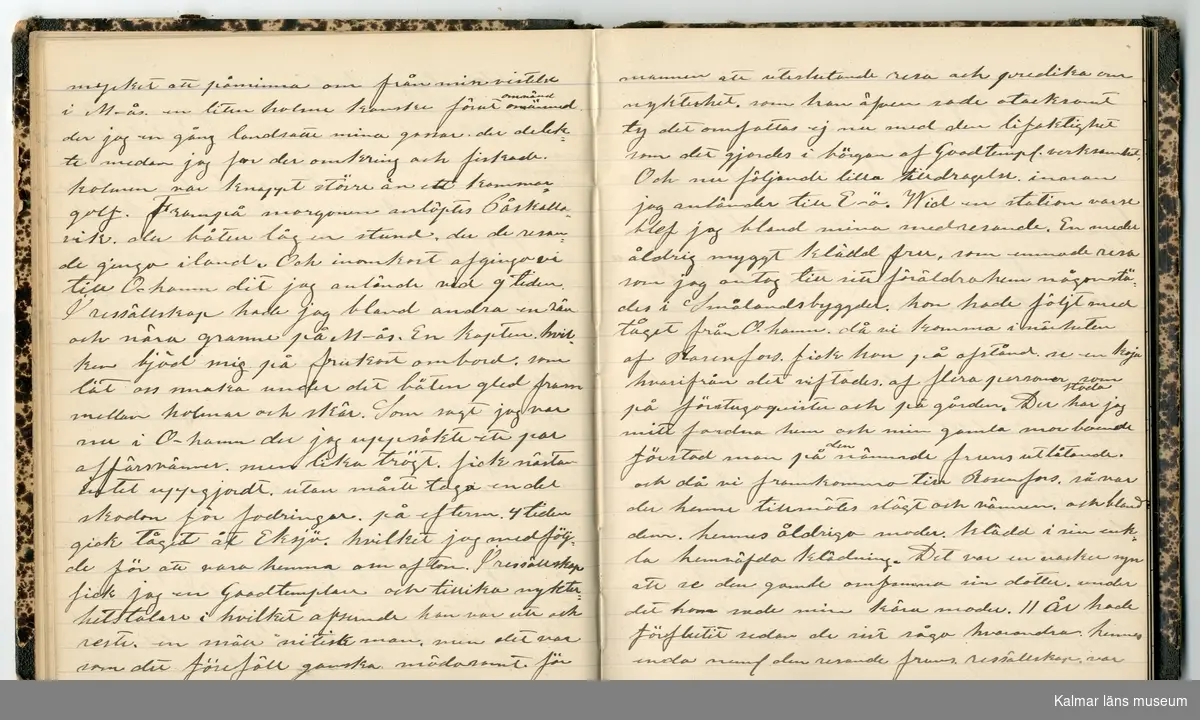 mycket att påminna om från min vistelse
i M-ås. en liten holme kanske förut omnämnd
omnämnd.
der jag en gång landsatte mina gossar. der de lek-
te medan jag for der omkring och fiskade.
holmen var knappt större än ett kammar
golf. Frampå morgonen anlöptes Påskalla-
vik. der båten låg en stund, der de resan-
de gingo i land. Och inom kort afgingo vi
till O-hamn dit jag anlände ved 9 tiden.
I ressällskap hade jag bland andra en vän
och nära granne på M-ås. En kapten. hvil
ken bjöd mig på frukost ombord. som
lät oss smaka under det båten gled fram
mellan holmar och skär. Som sagt jag var
nu i O-hamn der jag uppsökte ett par
affärsvänner. men lika trögt. fick nästan
intet uppgjordt. utan måste taga en del
skodon för fodringar. på efterm. 4 tiden
gick tåget åt Eksjö. hvilket jag medfölj-
de för att vara hemma om afton. I ressällskap
fick jag en Goodtemplare och tillika nykter-
hetstalare i hvilket afseende han var ute och
reste. en mäkta nitisk man. men det var
som det föreföll ganska mödosamt. för
mannen att uteslutande resa och predika om
nykterhet. som han äfven sade otacksamt
ty det omfattas ej nu med den lifaktighet
som det gjordes i början af Goodtempl. verksamhet.
Och nu följande lilla tilldragelse. innan
jag anländer till E-ö. Wid en station varse
blef jag bland mina medresande. En medel
åldrig snyggt klädd fru, som ämnade resa
som jag antog till sitt föräldrahem någonstä-
des i Smålandsbygder. hon hade följt med
tåget från O.hamn. då vi komma i närheten
af Rosenfors. fick hon på afstånd. se en koja
hvarifrån det viftades. af flera personer som
stodo
på förstugoqvisten och på gården. Der har jag
mitt fordna hem och min gamla mor boende
förstod man på den nämnde fruns uttalande.
och då vi framkommo till Rosenfors. så var
der henne tillmötes slägt och vänner. och bland
dem. hennes åldriga moder. klädd i sin enk-
la hemväfda klädning. Det var en vacker syn
att se den gamla omfamna sin dotter. under
det hon sade min kära moder. 11 år hade
förflutit sedan de sist sågo hvarandra. hennes
enda den resande fruns. ressällskap. var
Kalmar läns museum